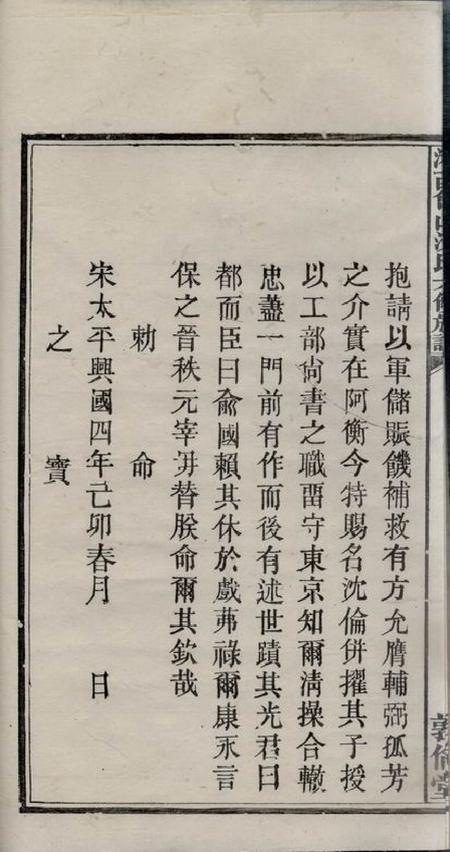 抱請以軍儲賑饑補救有方允膺輔弼孤芳
之介實在阿衡今特賜名沈倫併擢其子授
以工部尙書之職畱守東京知爾淸操合轍
忠藎一門前有作而後有述世蹟其光君曰
都而臣曰兪國賴其休於戲茀祿爾康永言
保之晉秩元宰毋替朕命爾其欽哉
勅命
宋太平興國四年己卯春月 日
之寶
敦倫堂